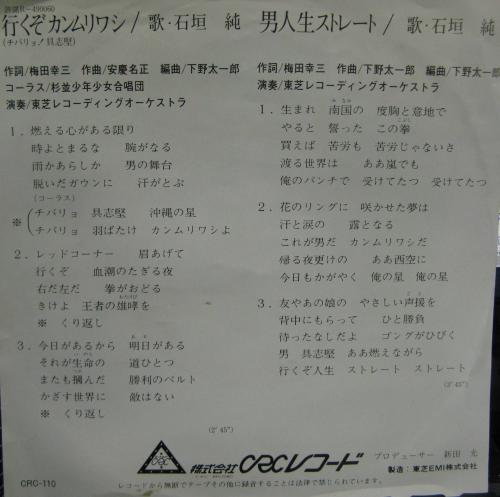 行くぞカンムリワシ/歌・石垣 純
(チバリョ!具志堅)
作詞/梅田幸三 作曲/安慶名正 編曲/下野太一郎
コーラス/杉並少年少女合唱団
演奏/東芝レコーディングオーケストラ
1. 燃える心がある限り
時よとまるな 腕がなる
雨かあらしか 男の舞台
脱いだガウンに 汗がとぶ
(コーラス)
※ チバリョ 具志堅 沖縄の星
チバリョ 羽ばたけ カンムリワシよ
2. レッドコーナー 眉あげて
行くぞ 血潮のたぎる夜
右だ左だ 拳がおどる
きけよ 王者の雄哮を
※ くり返し
3. 今日があるから 明日がある
それが生命の 道ひとつ
またも摑んだ 勝利のベルト
かざす世界に 敵はない
※ くり返し
(2′45″)
男人生ストレート/歌・石垣 純
作詞/梅田幸三 作曲/下野太一郎 編曲/下野太一郎
演奏/東芝レコーディングオーケストラ
1. 生まれ 南国の 度胸と意地で
やると 誓った この拳
買えば 苦労も 苦労じゃないさ
渡る世界は ああ嵐でも
俺のパンチで 受けてたつ 受けてたつ
2. 花のリングに 咲かせた夢は
汗と涙の 露となる
これが男だ カンムリワシだ
帰る夜更けの ああ西空に
今日もかがやく 俺の星 俺の星
3. 友やあの娘の やさしい声援を
背中にもらって ひと勝負
待ったなしだよ ゴングがひびく
男 具志堅 ああ燃えながら
行くぞ人生 ストレート ストレート
(3′45″)
CRC-110
CRC
株式会社 CRCレコード
プロデューサー 新田 光
製造:東芝EMI株式会社
レコードから無断でテープその他に録音することは法律で禁じられています。